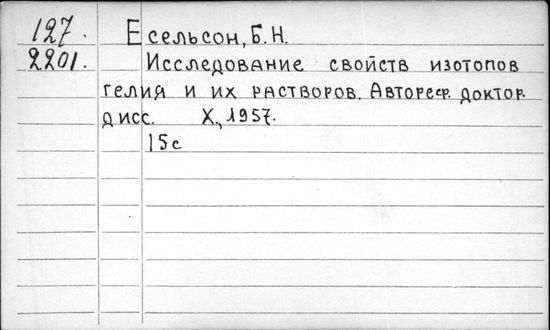 127. Есельсон, Б.Н.
2201. Исследование свойств изотопов
гелия и их растворов. Автореф. доктор.
дисс. Х., 1957.
15с